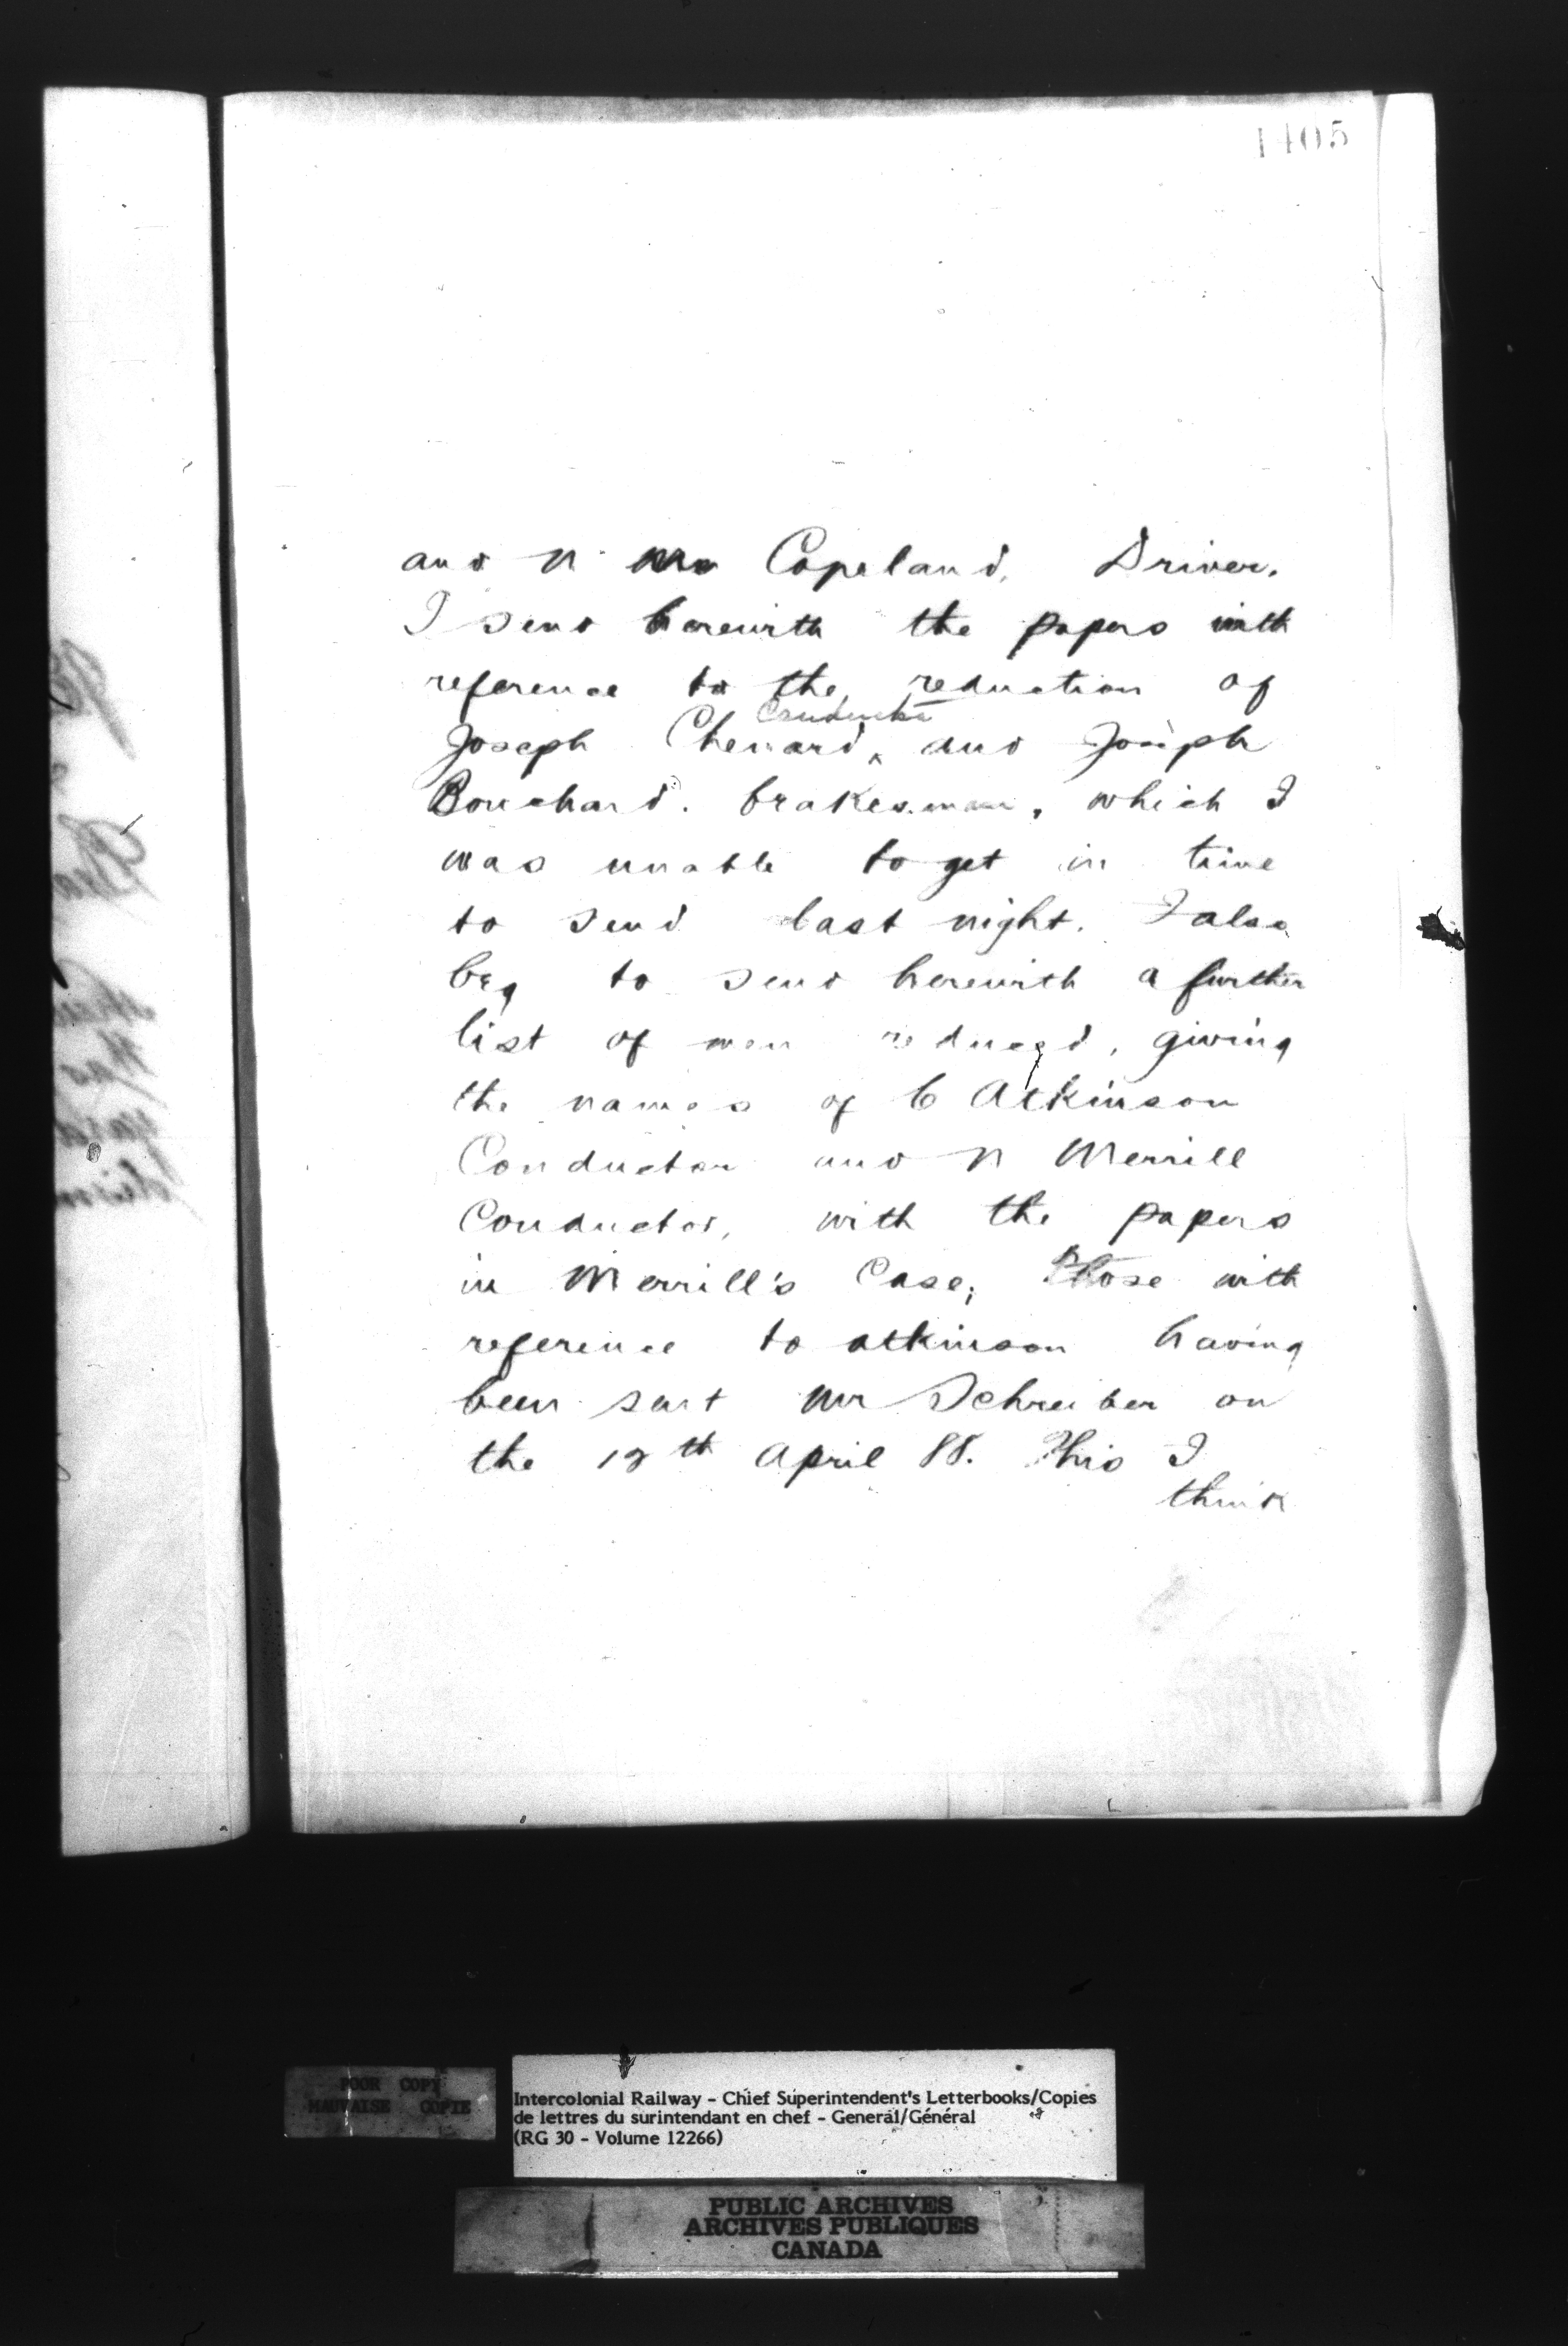 1405
and N Copeland, Driver.
I send herewith the papers with
reference to the reduction of
Joseph Chenard, Conductor and Joseph
Bouchard. brakesman, which I
was unable to get in time
to send last night. I also
beg to send herewith a further
list of men reduced, giving
the names of C Atkinson
Conductor and N Merrill
Conductor, with the papers
in Merrill's Case, those with
reference to Atkinson having
been sent Mr Schreiber on
the 12th April 88. This I
think
POOR COPY
MAUVAISE COPIE
Intercolonial Railway - Chief Superintendent's Letterbooks/Copies
de lettres du surintendant en chef - General/Général
(RG 30 - Volume 12266)
PUBLIC ARCHIVES
ARCHIVES PUBLIQUES
CANADA